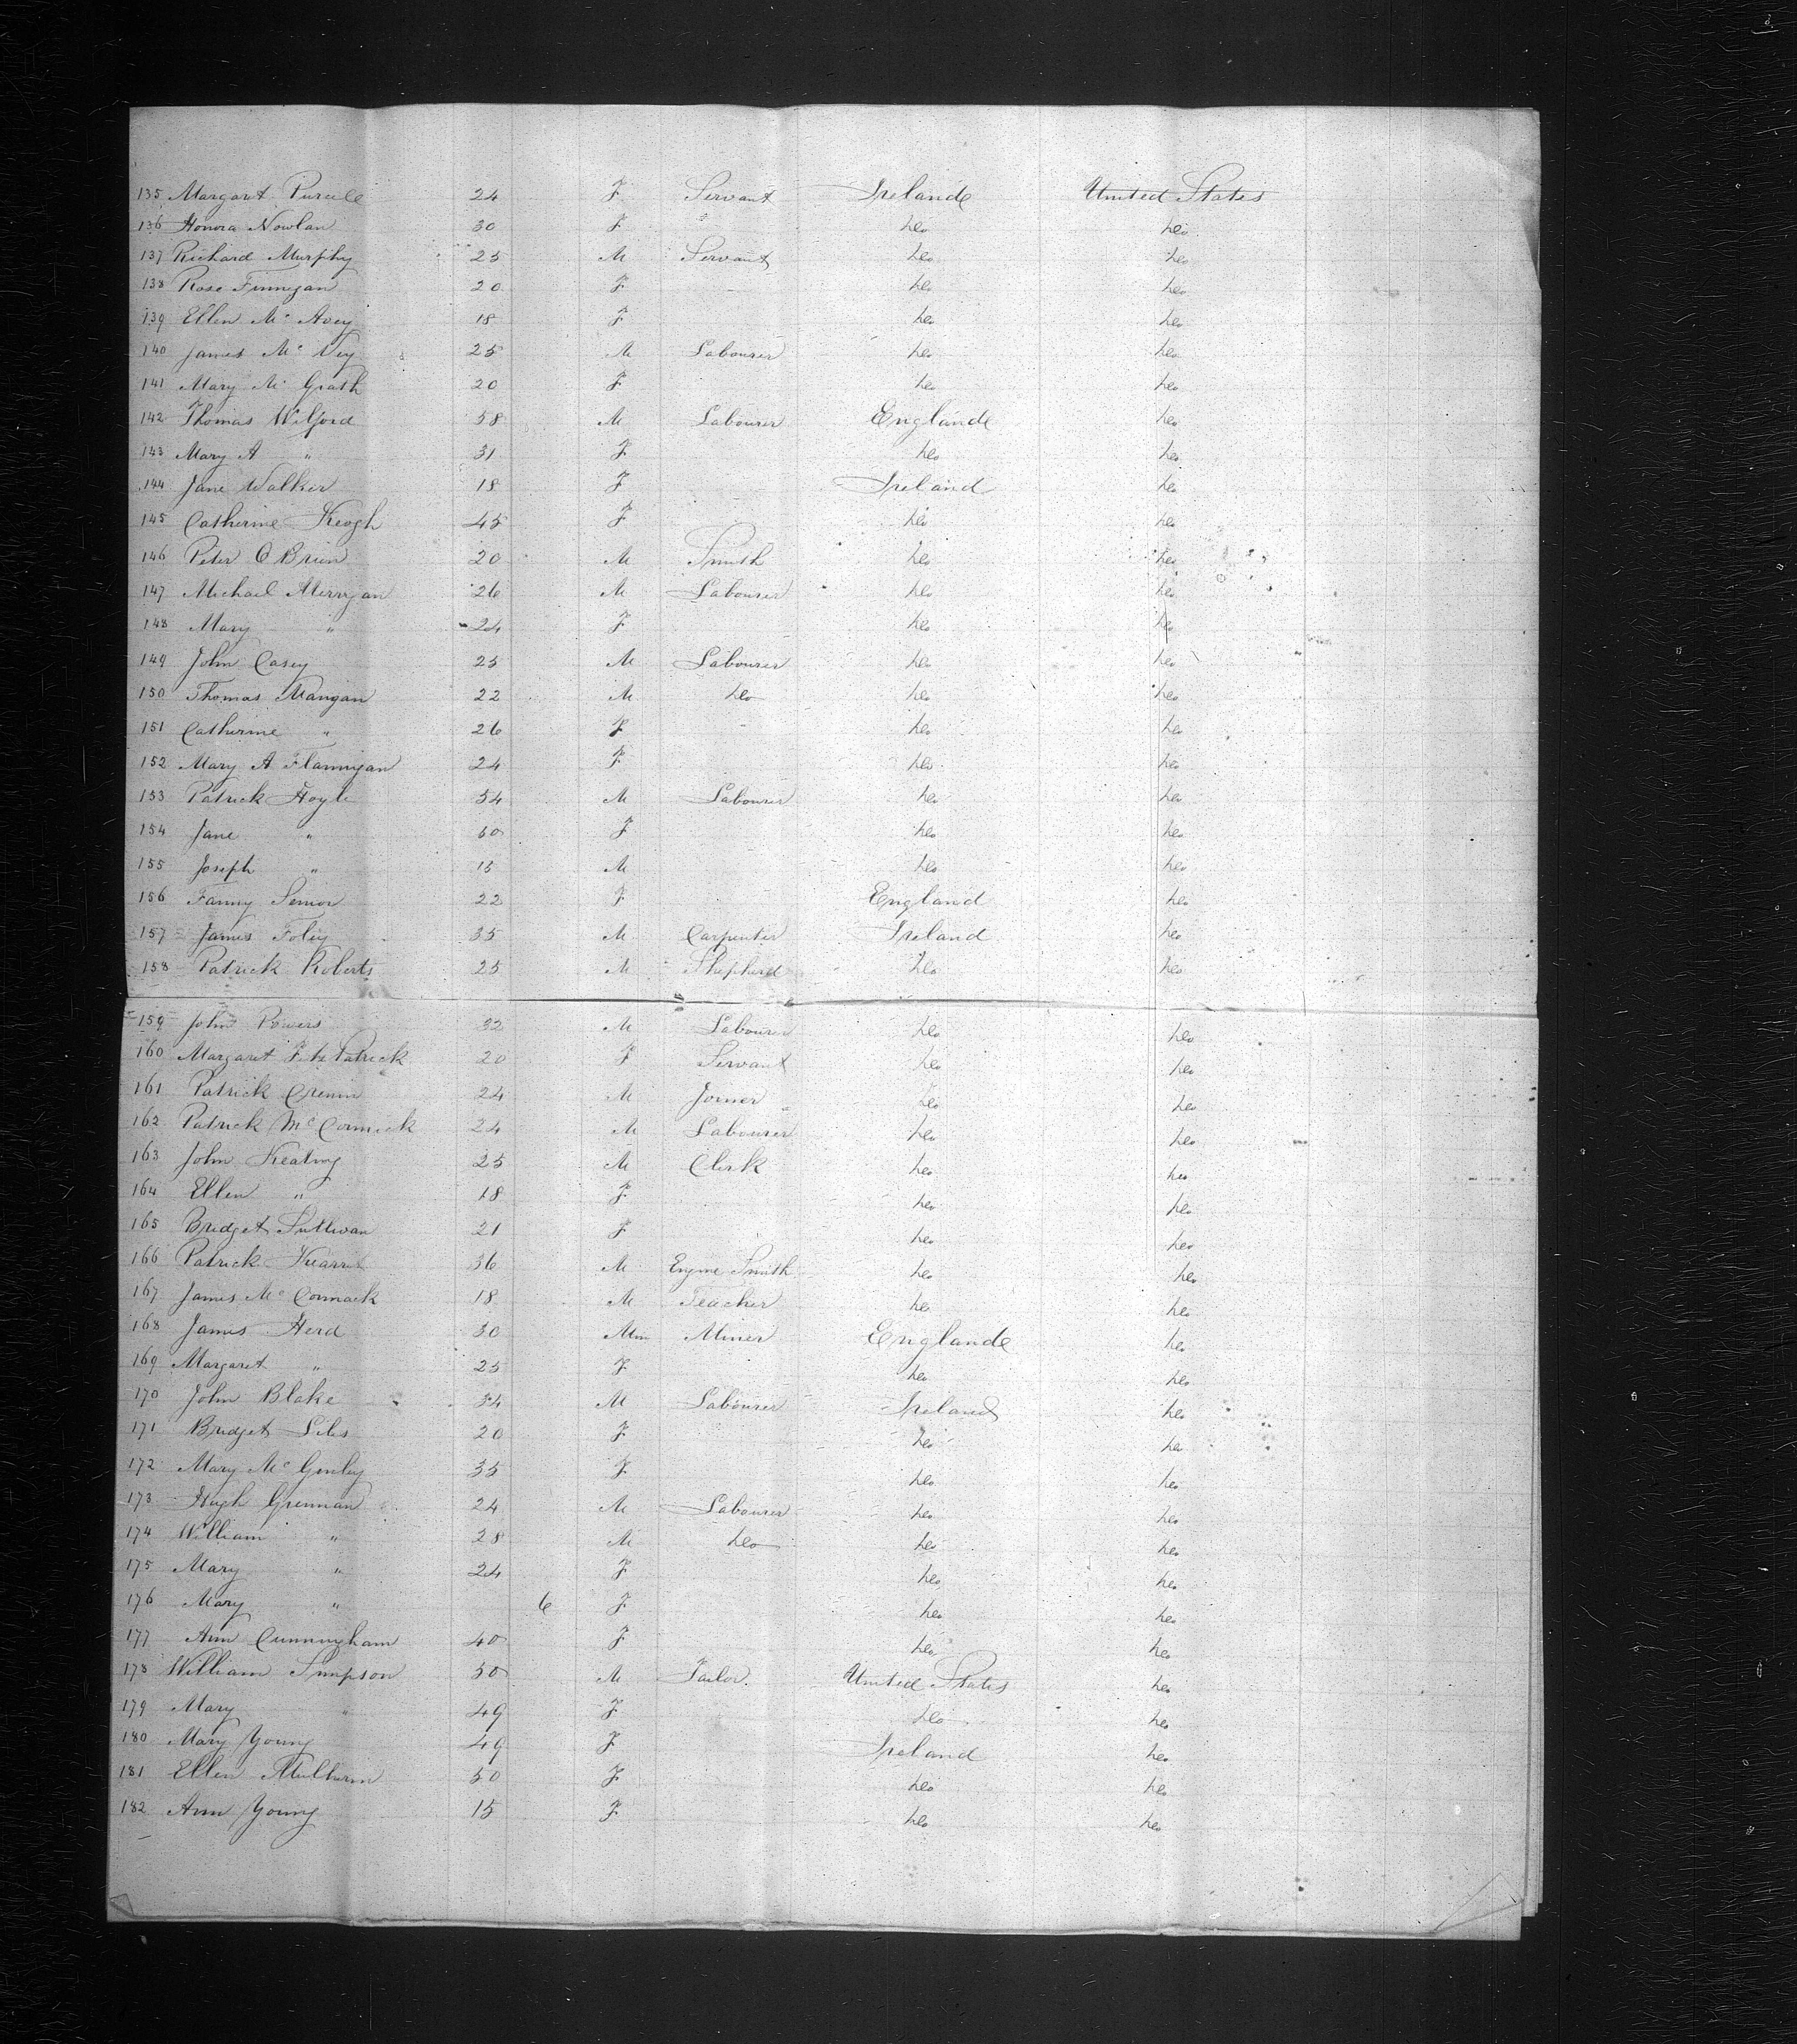 135 Margaret Purcell 24 F Servant Ireland United States
136 Honora Nowlan 30 F do do
137 Richard Murphy 25 M Servant do do
138 Rose Finnigan 20 F do do
139 Ellen Mc Avey 18 F do do
140 James Mc Vey 25 M Labourer do do
141 Mary Mc Grath 20 F do do
142 Thomas Wilford 58 M Labourer England do
143 Mary A " 31 F do do
144 Jane Walker 18 F Ireland do
145 Catherine Keogh 45 F do do
146 Peter O Brien 20 M Smith do do
147 Michael Merrigan 26 M Labourer do do
148 Mary " 24 F do do
149 John Casey 25 M Labourer do do
150 Thomas Mangan 22 M do do do
151 Catherine " 26 F do do
152 Mary A Flannigan 24 F do do
153 Patrick Hoyle 54 M Labourer do do
154 Jane " F do do
155 Joseph " 15 M do do
156 Fanny Senior 22 F England do
157 James Foley 35 M Carpenter Ireland do
158 Patrick Roberts 25 M Shepherd do do
159 John Powers 32 M Labourer do do
160 Margaret FitzPatrick 20 F Servant do do
161 Patrick Cremin 24 M Joiner do do
162 Patrick McCormick 24 M Labourer do do
163 John Keating 25 M Clerk do do
164 Ellen " 18 F do do
165 Bridget Sullivan 21 F do do
166 Patrick 36 M Engine Smith do do
167 James Mc Cormack 18 M Teacher do do
168 James Herd 30 M Miner England do
169 Margaret " 25 F do do
170 John Blake 34 M Labourer Ireland do
171 Bridget Liles 20 F do do
172 Mary Mc Ginley 35 F do do
173 Hugh Grennan 24 M Labourer do do
174 William " 28 M do do do
175 Mary " 24 F do do
176 Mary " 6 F do do
177 Ann Cunningham 40 F do do
178 William Simpson 50 M Tailor United States do
179 Mary " 49 F do do
180 Mary Young 49 F Ireland do
181 Ellen Mulhern 50 F do do
182 Ann Young 15 F do do